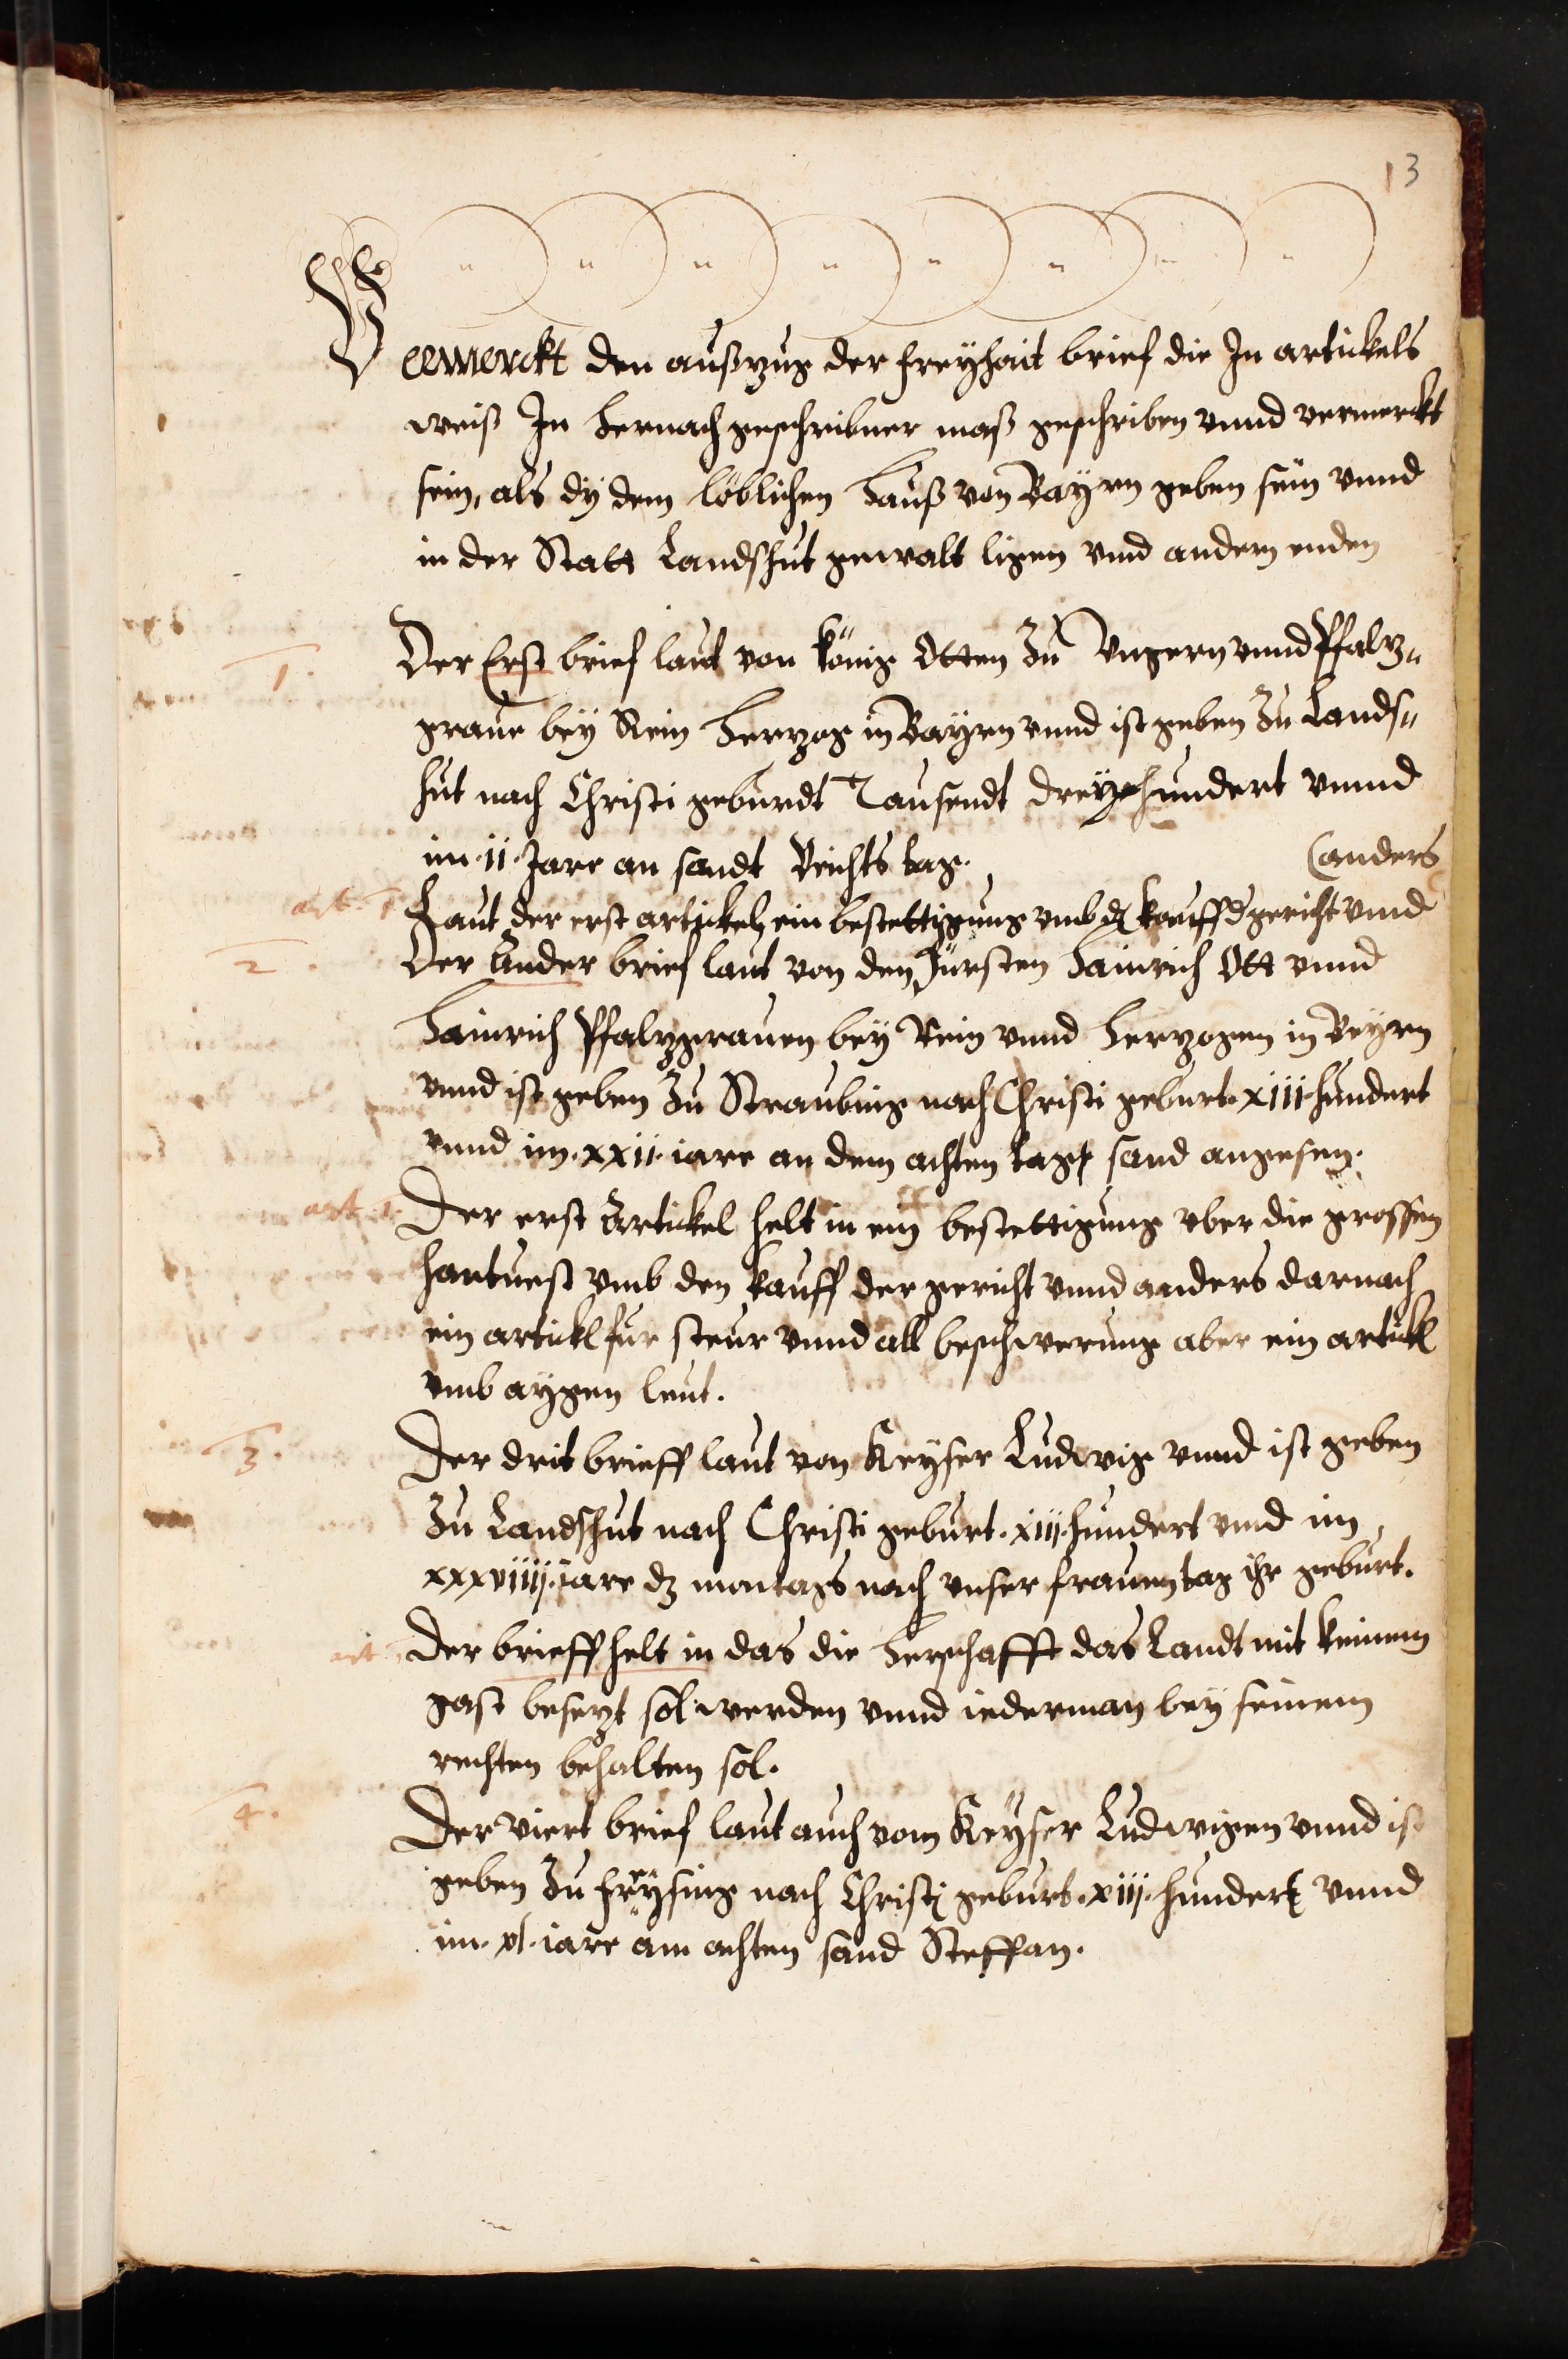 13
Vermerckt den außzug der freyhait brief die In artickels
weiß In hernach geschribner maß geschriben vnnd vermerckt
sein, als dy dem löblichen Hauß von Bayrn geben sein vnnd
in der Statt Landshut gewalt ligen vnd andern enden
1. Der Erst brief laut von könig Otten Zu Vngern vnnd Pfaltz„
graue bey Rein Hertzog in Bayrn vnnd ist geben Zu Lands„
hut nach Christi geburdt Tausendt dreyhundert vnnd
im .11. Jare an sandt Veichts tag. (anders
art. 1 Laut der erst artickel ein bestettigung vmb kauff gericht vnnd
2. Der Ander brief laut von den Fürsten Hainrich Ott vnnd
Hainrich Pfaltzgrauen bey Rein vnnd Hertzogen in Beyrn
vnnd ist geben Zu Straubing nach Christi geburt. xiii. hundert
vnnd im. xxii. iare an dem achten tag sand angesen.
art. 1. Der erst Artickel helt in ein bestettigung vber die grossen
hantuest vmb den kauff der gericht vnnd anders darnach
ein artickl fur steur vnnd all beschwerung aber ein artickl
vmb aygen leut.
3. Der drit brieff laut von Keyser Ludwig vnnd ist geben
Zu Landshut nach Christi geburt. xiij. hundert vnd im
xxxviiij. iare dz montags nach vnser frauen tag ihr geburt.
art Der brieff helt in das die Herschafft das Landt mit keinem
gast besetzt sol werden vnnd iederman bey seinem
rechten behalten sol.
4. Der viert brief laut auch vom Keyser Ludwigen vnnd ist
geben Zu freysing nach Christi geburt. xiij. hundert vnnd
im. xl. iare am achten sand Steffan.